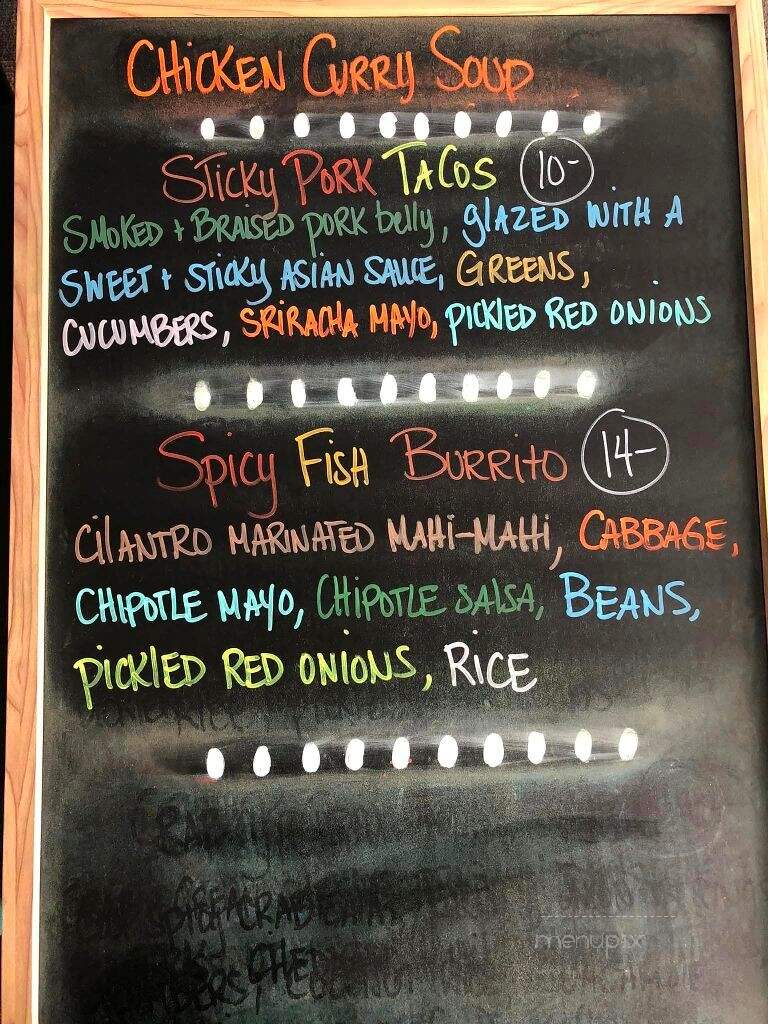 CHICKEN CURRY SOUP
STICKY PORK TACOS 10-
SMOKED + BRAISED PORK belly, glAZED WITH A
SWEET + STICKY ASIAN SAUCE, GREENS,
CUCUMBERS, SRIRACHA MAYO, PICKLED RED ONIONS
SPICY FISH BURRITO 14-
CILANTRO MARINATED MAHI-MAHI, CABBAGE,
CHIPOTLE MAYO, CHIPOTLE SALSA, BEANS,
PICKLED RED ONIONS, RICE
menupix